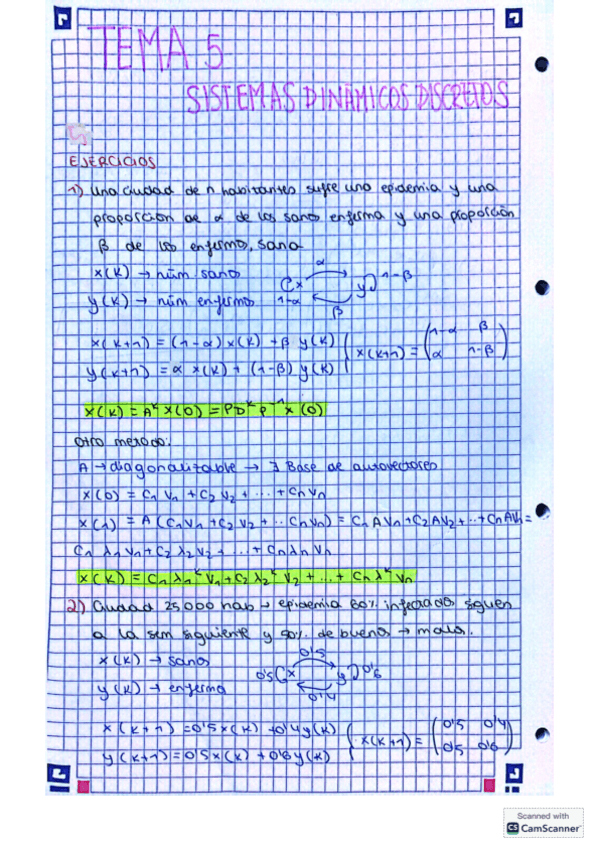 TEMA 5
SISTEMAS DINÁMICOS DISCRETOS
EJERCICIOS
1) Una ciudad de n habitantes sufre una epidemia y una
proporción de α de los sanos enferma y una proporción
β de los enfermos, sana.
x(k) → núm sanos
y(k) → núm enfermos
α
x y 1-β
1-α
β
x(k+1) = (1-α)x(k) + β y(k)
y(k+1) = α x(k) + (1-β) y(k)
x(k+1) = (1-α β
α 1-β)
x(k) = A^k x(0) = PD^k P^-1 x(0)
Otro método:
A → diagonalizable → ∃ Base de autovectores
x(0) = C1 V1 + C2 V2 + ... + Cn Vn
x(1) = A(C1V1 + C2 V2 + .. CnVn) = C1 AV1 + C2AV2 + .. + CnAVn =
C1 λ1 V1 + C2 λ2 V2 + ... + Cn λn Vn
x(k) = C1 λ1^k V1 + C2 λ2^k V2 + ... + Cn λ^k Vn
2) Ciudad 25000 hab → epidemia 60% infectados siguen
a la sem siguiente y 50% de buenos → malos.
x(k) → sanos
y(k) → enferma
0'5
0'5 x y 0'6
0'4
x(k+1) = 0'5x(k) + 0'4y(k)
y(k+1) = 0'5x(k) + 0'6y(k)
x(k+1) = (0'5 0'4
0'5 0'6)
Scanned with
CS CamScanner